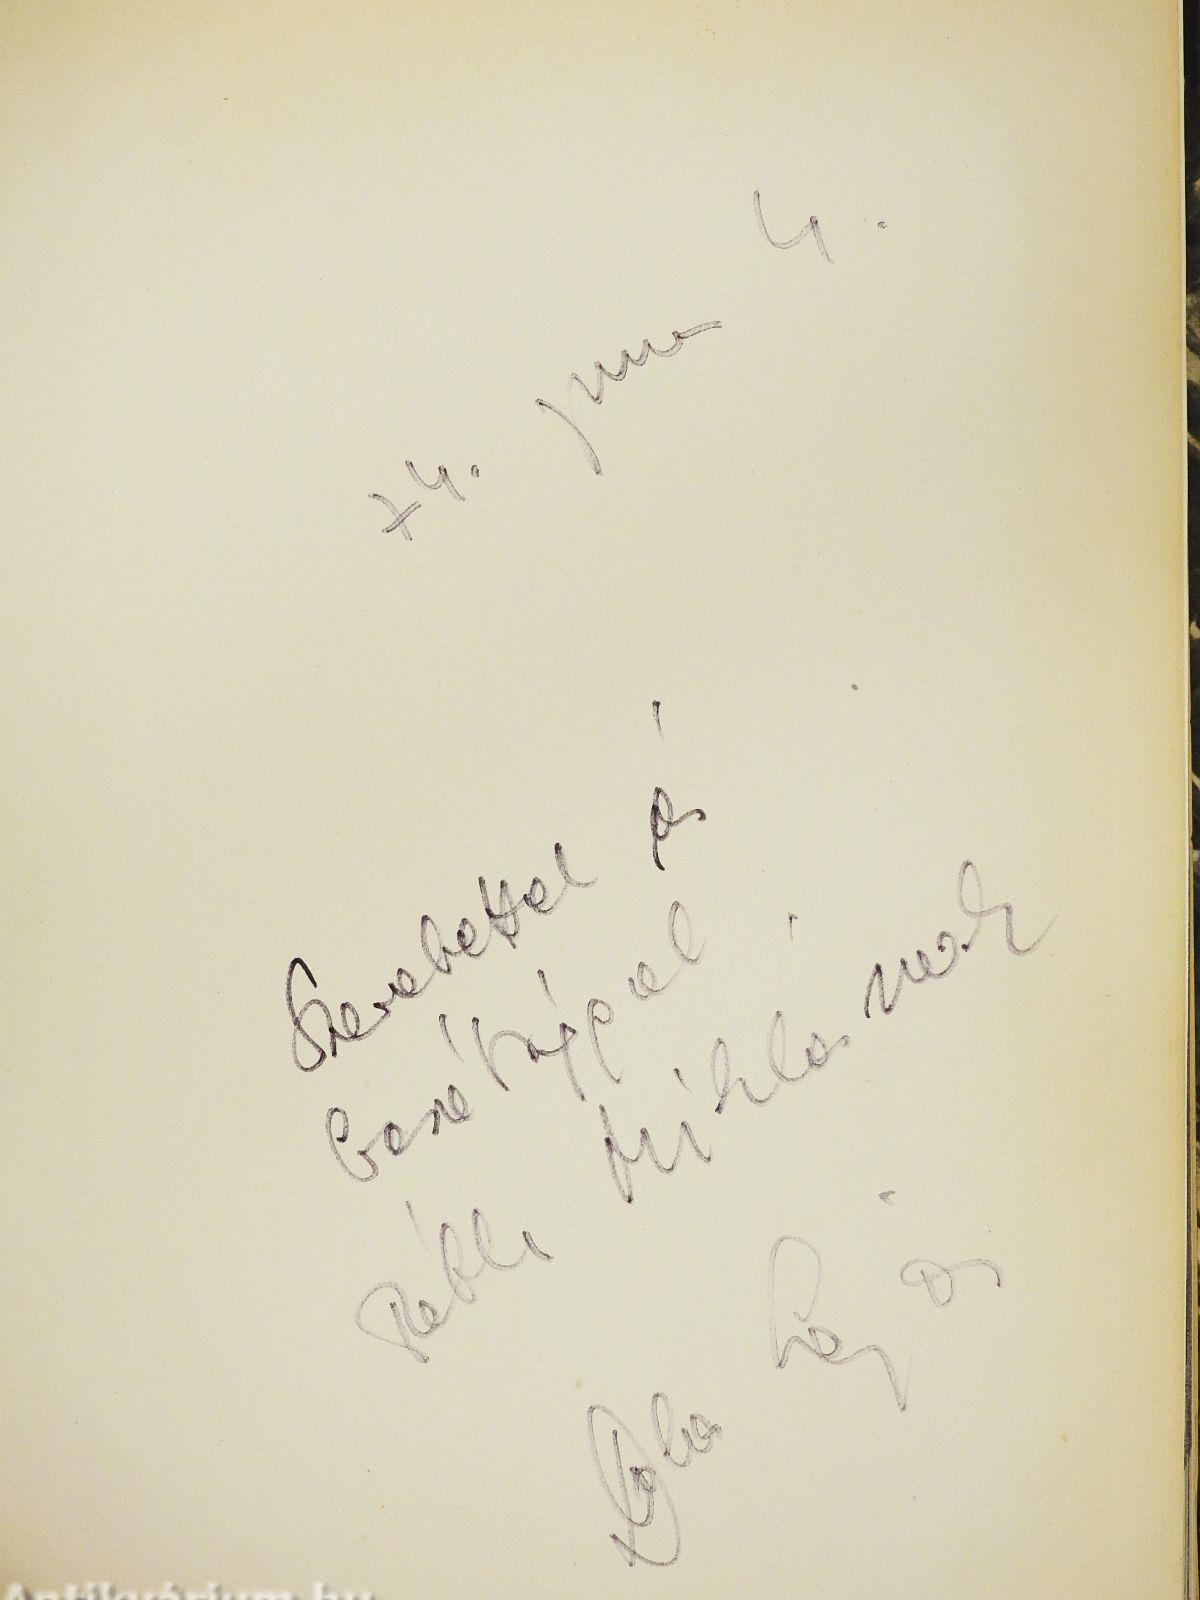 74. jun. 4.
Szeretettel és
barátsággal
Rékli Miklósnak
Lajos
Antikvárium.hu